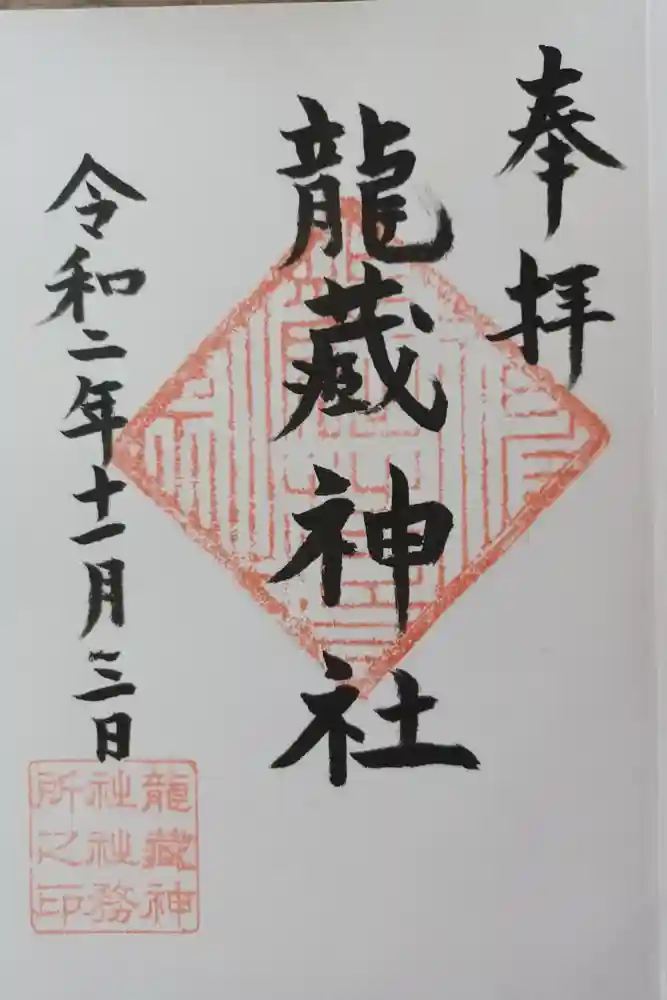 奉拝
龍蔵神社
令和二年十一月三日
龍蔵神
社社務
所之印